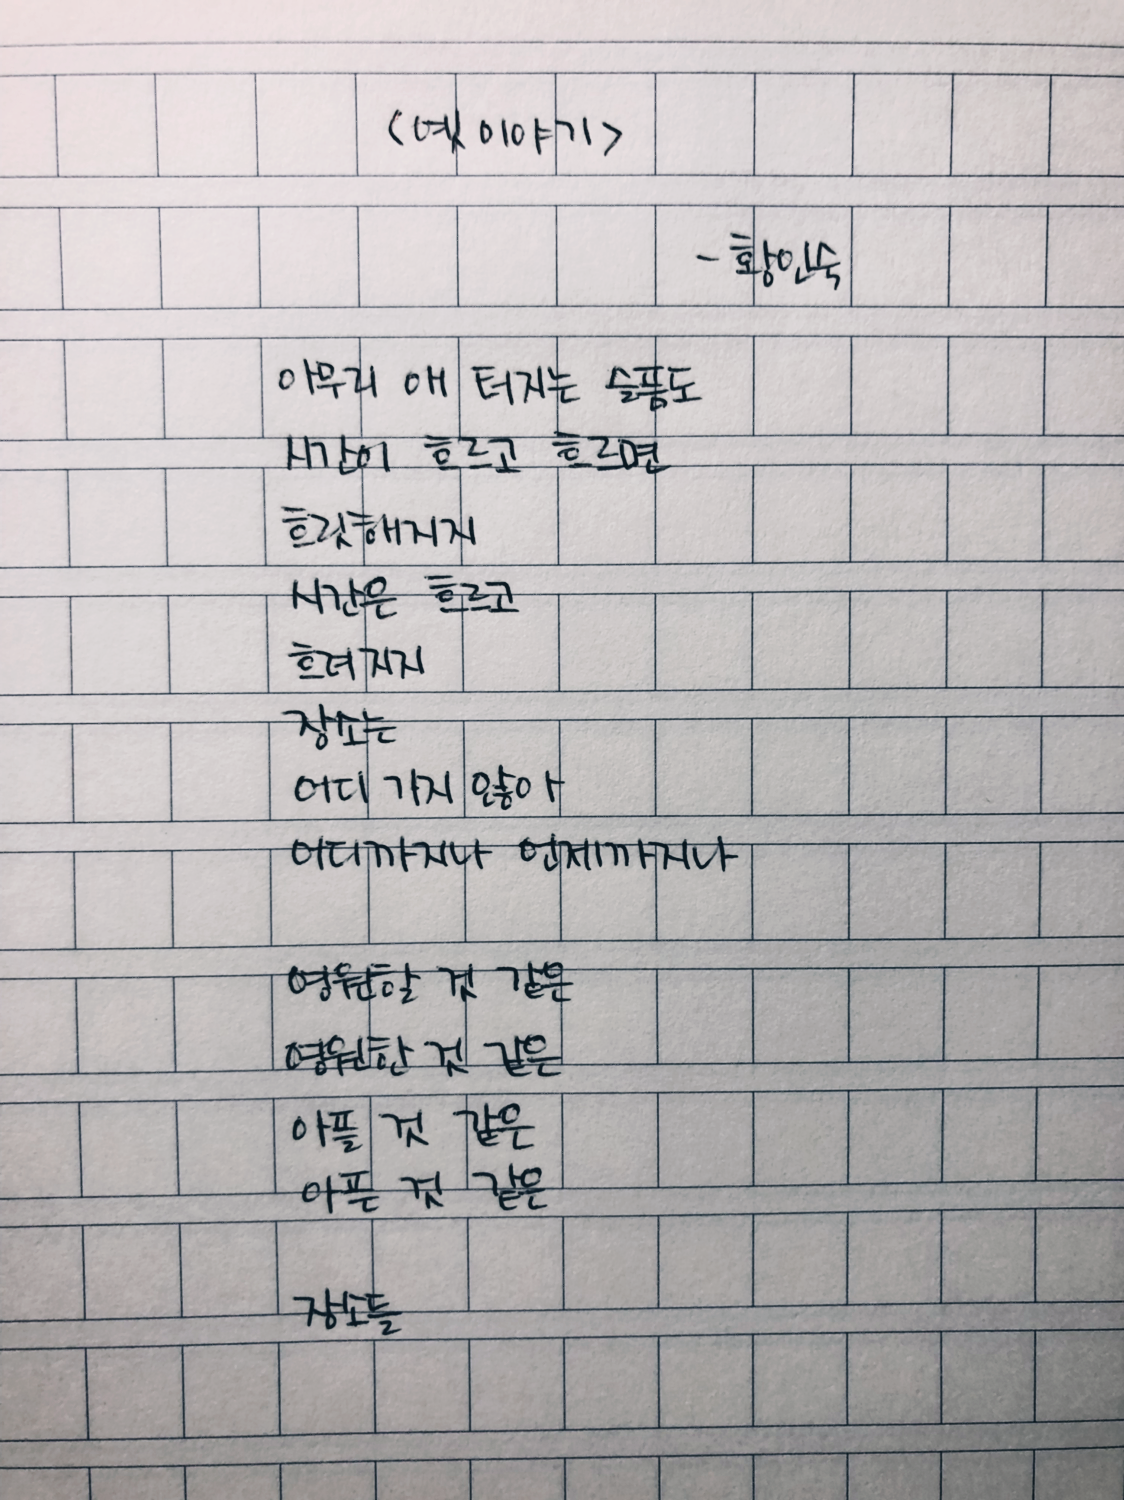 <옛 이야기>
- 황인숙
아무리 애 터지는 슬픔도
시간이 흐르고 흐르면
흐릿해지지
시간은 흐르고
흐려지지
장소는
어디 가지 않아
어디까지나 언제까지나
영원할 것 같은
영원한 것 같은
아플 것 같은
아픈 것 같은
장소들